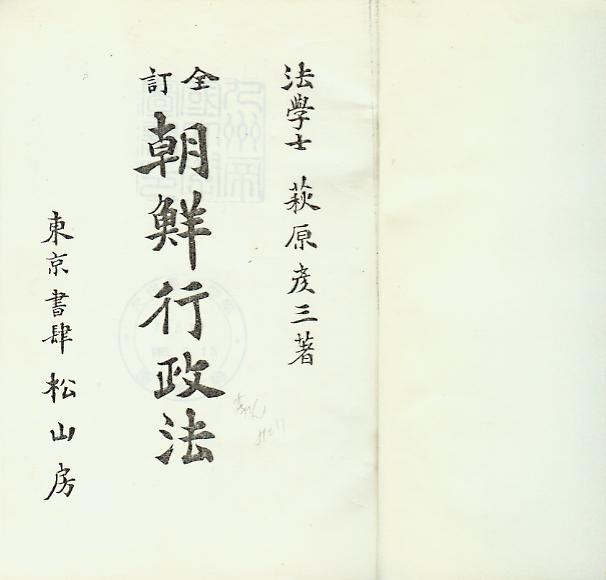 法學士 萩原彦三著
全訂
朝鮮行政法
東京書肆 松山房